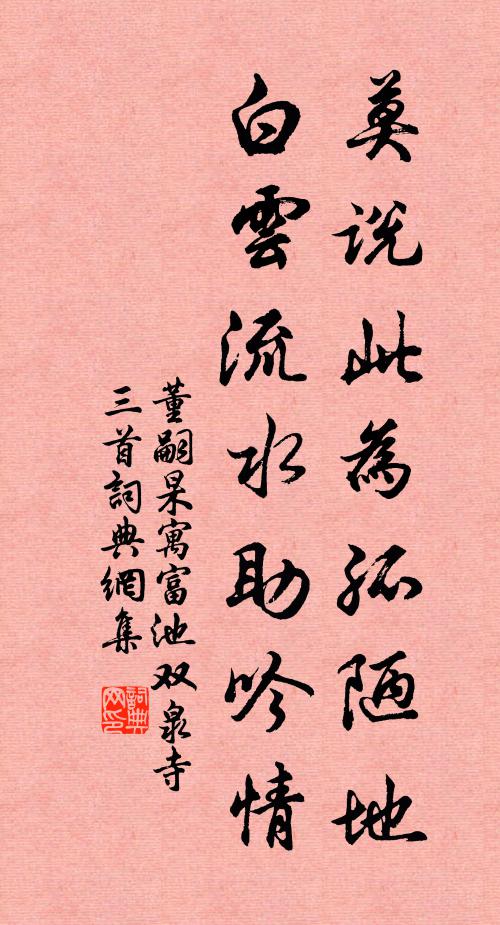 莫説此為孤陋地
白雲流水助吟情
董嗣杲寓富池双泉寺
三首詞典網集
詞典
网印